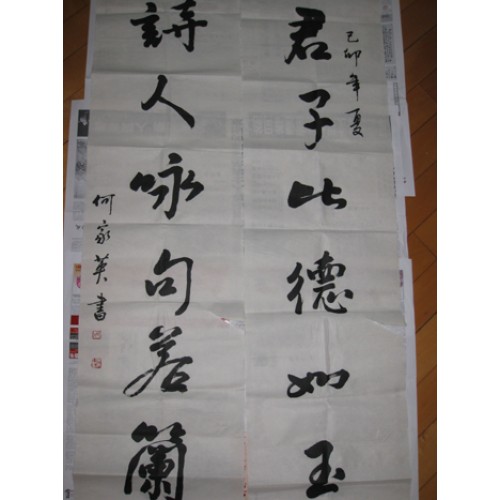 己卯年夏
君子比德如玉
詩人咏句若蘭
何家英書